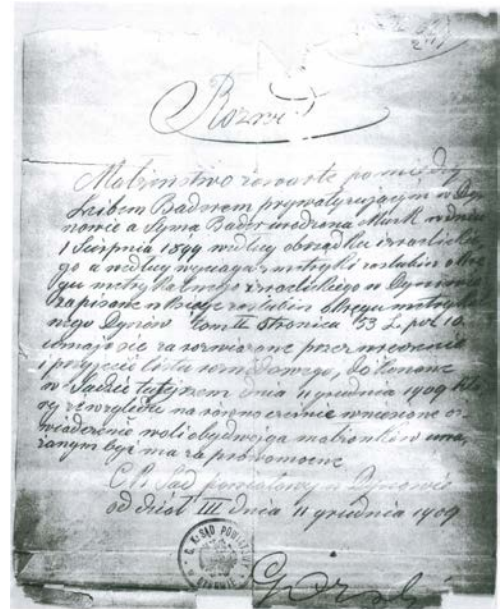 Małżeństwo zawarte pomiędzy
Leibem Badnerem prywatyzującym w Dy-
nowie a Symą Bader urodzoną Münk w dniu
1 Sierpnia 1899 według obrządku izraelickie-
go a według wyciągu z metryki zaślubin okrę-
gu metrykalnego izraelickiego w Dynowie
zapisane w księdze zaślubin okręgu metrykal-
nego Dynów tom III stronica 53 L. poz 10
uznaje się za rozwiązane przez wręczenie
i przyjęcie listu rozwodowego, dokonane
w Sądzie tutejszem dnia 11 grudnia 1909 któ-
ry ze względu na równocześnie wniesione oś-
wiadczenie woli obydwojga małżonków uwa-
żanym być ma za prawomocne
C.K. Sąd powiatowy w Dynowie
oddział III dnia 11 grudnia 1909
C. K. SĄD POWIATOWY